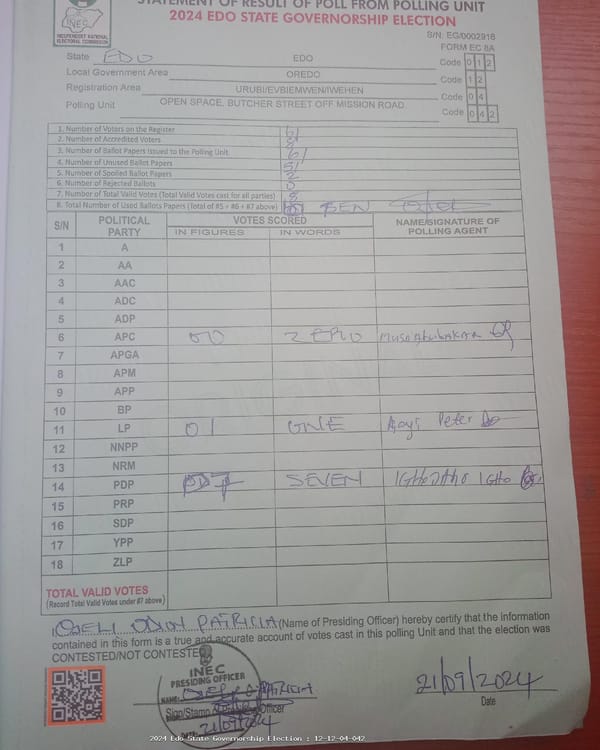 STATEMENT OF RESULT OF POLL FROM POLLING UNIT
2024 EDO STATE GOVERNORSHIP ELECTION
INEC
INDEPENDENT NATIONAL
ELECTORAL COMMISSION
S/N: EG/0002918
FORM EC 8A
State EDO EDO Code 0 1 2
Local Government Area OREDO Code 1 2
Registration Area URUBI/EVBIEMWEN/IWEHEN Code 0 4
Polling Unit OPEN SPACE, BUTCHER STREET OFF MISSION ROAD Code 0 4 2
1. Number of Voters on the Register 61
2. Number of Accredited Voters 8
3. Number of Ballot Papers Issued to the Polling Unit 61
4. Number of Unused Ballot Papers 51
5. Number of Spoiled Ballot Papers 2
6. Number of Rejected Ballots 0
7. Number of Total Valid Votes (Total Valid Votes cast for all parties) 8
8. Total Number of Used Ballots Papers (Total of #5 + #6 + #7 above) 10 TEN
S/N POLITICAL PARTY VOTES SCORED NAME/SIGNATURE OF POLLING AGENT
IN FIGURES IN WORDS
1 A
2 AA
3 AAC
4 ADC
5 ADP
6 APC 00 ZERO Musa Abubakar
7 APGA
8 APM
9 APP
10 BP
11 LP 01 ONE Peter
12 NNPP
13 NRM
14 PDP 07 SEVEN
15 PRP
16 SDP
17 YPP
18 ZLP
TOTAL VALID VOTES
(Record Total Valid Votes under #7 above)
ODION PATRICIA (Name of Presiding Officer) hereby certify that the information
contained in this form is a true and accurate account of votes cast in this polling Unit and that the election was
CONTESTED/NOT CONTESTED
INEC
PRESIDING OFFICER
NAME: PATRICIA
Sign/Stamp of Presiding Officer
DATE: 21/09/2024
21/09/2024
Date
2024 Edo State Governorship Election : 12-12-04-042